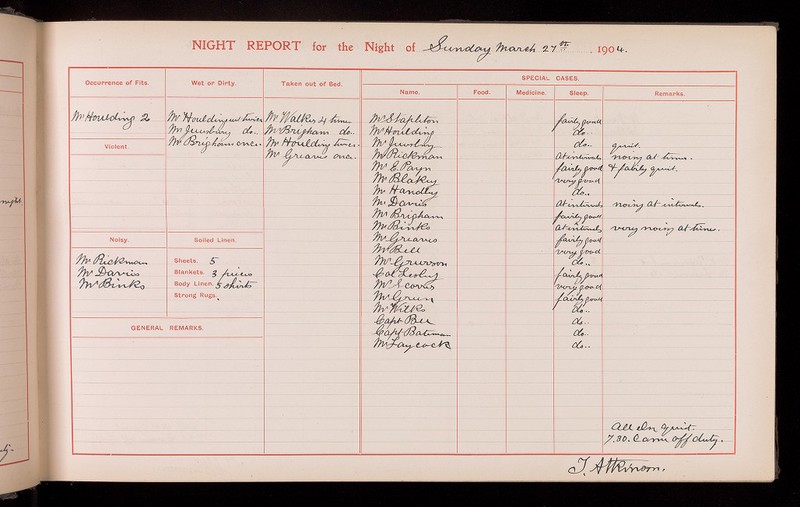 NIGHT REPORT for the Night of Sunday March 27th . 1904.
Occurrence of Fits.
Mr Houlding 2
Violent.
Noisy.
Mr Rickman
Mr Davis
Mr Binks
Wet or Dirty.
Mr Houlding wet twice
do..
Mr Brigham once.
Soiled Linen.
Sheets. 5
Blankets. 3 pieces
Body Linen. 5 shirts
Strong Rugs.
Taken out of Bed.
Mr Walker 4 times
Mr Brigham do..
Mr Houlding twice.
Mr Greaves once.
SPECIAL CASES.
Name. Food. Medicine. Sleep. Remarks.
Mr Stapleton fairly good
Mr Houlding do..
do.. quiet.
Mr Rickman At intervals noisy at times.
Mr E. Payn fairly good & fairly quiet.
Mr Blakey very good
Mr Handley do..
Mr Davis At intervals noisy at intervals.
Mr Brigham fairly good
Mr Binks at intervals very noisy at times.
Mr Greaves fairly good
Mr Bell very good
Mr Grierson do..
Col Lesley fairly good
very good
Mr Green fairly good
Mr Wilks do..
Capt Bell do..
Capt Bateman do
Mr Laycock do..
All else quiet.
7.30. Came off duty.
GENERAL REMARKS.
T. Atkinson.